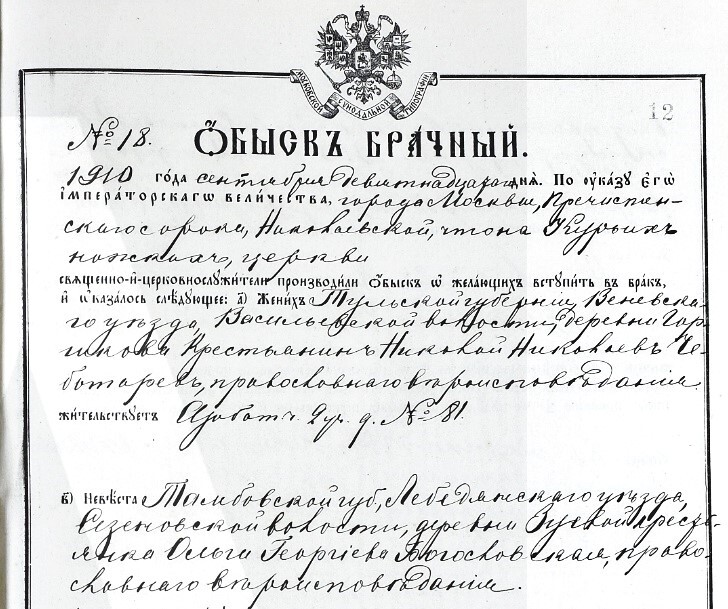 МОСКОВСКОЙ СѴНОДАЛЬНОЙ ТИПОГРАФІИ
12
№ 18.
ОБЫСКЪ БРАЧНЫЙ.
1910 года сентября девятнадцатаго дня. По указу Его
Императорскаго Величества, города Москвы, Пречистен-
скаго сорока, Николаевской, что на Курьихъ
ножкахъ, церкви
священно-и-церковнослужители производили обыскъ ѡ желающихъ вступить въ бракъ,
и ѡказалось слѣдующее: а) Женихъ Тульской губерніи, Веневска-
го уѣзда, Васильевской волости, деревни Гор-
шкова крестьянинъ Николай Николаевъ Че-
ботаревъ, православнаго вѣроисповѣданія.
жительствуетъ Арбатъ 2 уч. д. № 81.
в) Невѣста Тамбовской губ., Лебедянскаго уѣзда,
Сезеновской волости, деревни Зуевой кресть-
янка Ольга Георгіева Богословская, право-
славнаго вѣроисповѣданія.